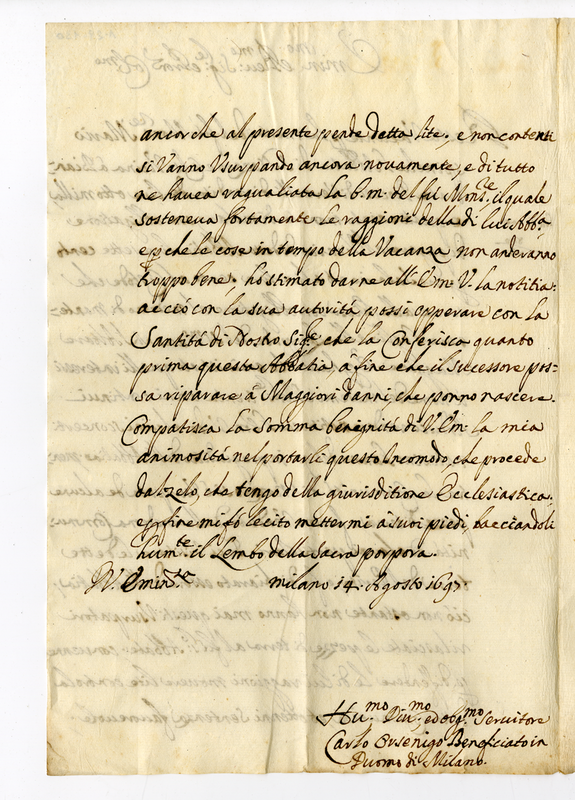 ancorche al presente pende detta lite, e non contenti
si Vanno Vsurpando ancora novamente, e di tutto
ne havea raguagliata la b. m. del fú Mons.re il quale
sosteneva fortamente le raggioni della di lui Abb.a
e p che le cose in tempo della Vacanza non anderanno
troppo bene, hò stimato darne all'Em: V. la notitia,
acciò con la sua autoritá possi opperare con la
Santitá di Nostro Sig.re che la Conferisca quanto
prima questa Abbatia, á fine che il successore pos=
sa riparare á Maggiori danni, che ponno nascere.
Compatisca la Somma benignitá di V. Em. la mia
animositá nel portarle questo Incomodo, che procede
dal zelo, che tengo della giurisditione Ecclesiastica.
e p fine mi fó lecito mettermi à suoi piedi, bacciandoli
hum.te il Lembo della Sacra porpora.
V. Emin.za milano 14. Agosto 1697
Hu.mo Diu.mo, ed obg.mo Servitore
Carlo Orsenigo Beneficiato in
Duomo di Milano.